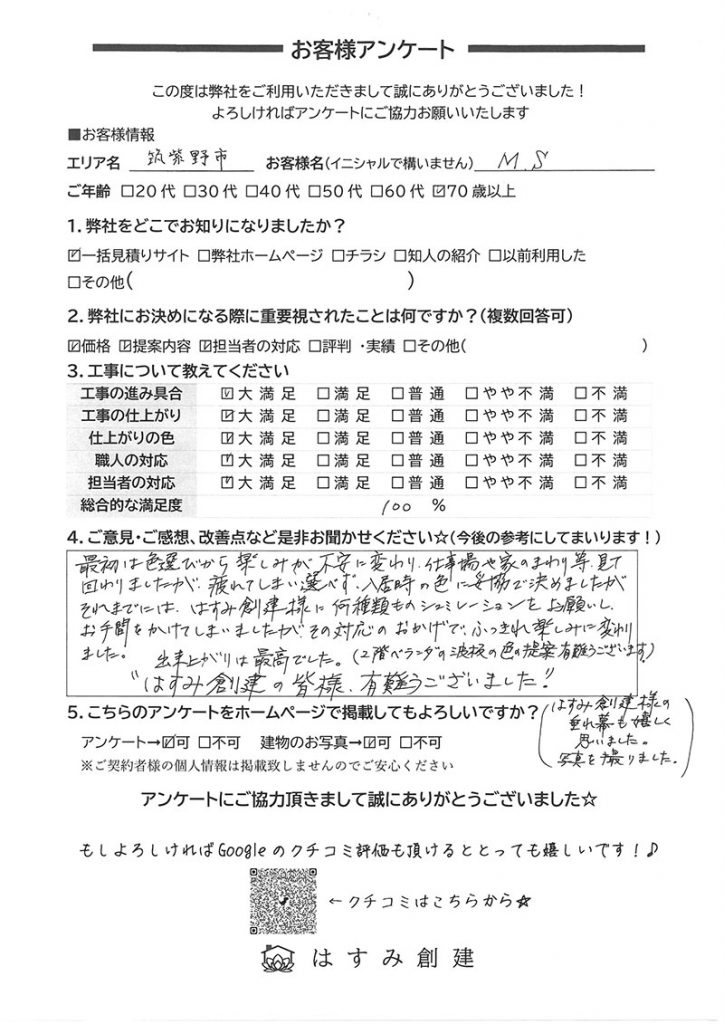 お客様アンケート
この度は弊社をご利用いただきまして誠にありがとうございました！
よろしければアンケートにご協力お願いいたします
■お客様情報
エリア名 筑紫野市 お客様名(イニシャルで構いません) M.S
ご年齢 □20代 □30代 □40代 □50代 □60代 ☑70歳以上
1. 弊社をどこでお知りになりましたか？
☑一括見積りサイト □弊社ホームページ □チラシ □知人の紹介 □以前利用した
□その他( )
2. 弊社にお決めになる際に重要視されたことは何ですか？(複数回答可)
☑価格 ☑提案内容 ☑担当者の対応 □評判・実績 □その他( )
3. 工事について教えてください
工事の進み具合 ☑大満足 □満足 □普通 □やや不満 □不満
工事の仕上がり ☑大満足 □満足 □普通 □やや不満 □不満
仕上がりの色 ☑大満足 □満足 □普通 □やや不満 □不満
職人の対応 ☑大満足 □満足 □普通 □やや不満 □不満
担当者の対応 ☑大満足 □満足 □普通 □やや不満 □不満
総合的な満足度 100 %
4. ご意見・ご感想、改善点など是非お聞かせください☆(今後の参考にしてまいります！)
最初は色選びから楽しみが不安に変わり、仕事場や家のまわり等、見て
回わりましたが、疲れてしまい選べず、入居時の色に妥協で決めましたが
それまでには、はすみ創建様に何種類ものシュミレーションをお願いし、
お手間をかけてしまいましたがその対応のおかげで、ふっきれ楽しみに変わり
ました。 出来上がりは最高でした。(2階ベランダの波板の色の提案有難うございます)
"はすみ創建の皆様、有難うございました!"
5. こちらのアンケートをホームページで掲載してもよろしいですか？
アンケート→☑可 □不可 建物のお写真→☑可 □不可
※ご契約者様の個人情報は掲載致しませんのでご安心ください
(はすみ創建様の
垂れ幕も嬉しく
思いました。
写真を撮りました。)
アンケートにご協力頂きまして誠にありがとうございました☆
もしよろしければGoogleのクチコミ評価も頂けるととっても嬉しいです！♪
←クチコミはこちらから☆
はすみ創建